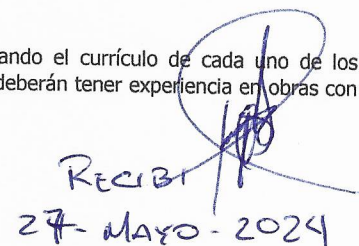 ando el currículo de cada uno de los
deberán tener experiencia en obras con
RECIBI
27- MAYO - 2024